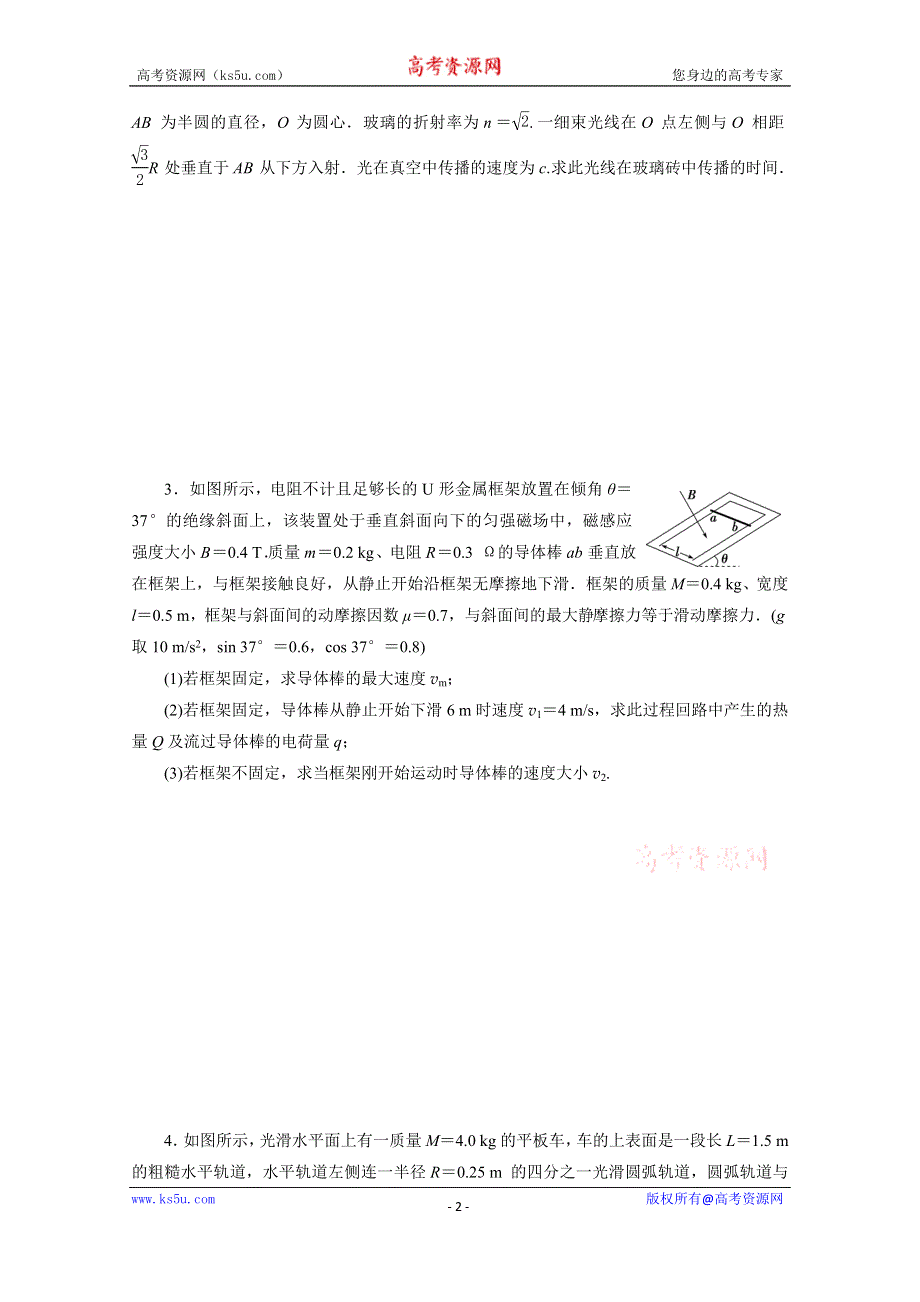 高考资源网（ks5u.com） 高考资源网 您身边的高考专家
AB 为半圆的直径，O 为圆心．玻璃的折射率为 n＝√2. 一细束光线在 O 点左侧与 O 相距
√3/2 R 处垂直于 AB 从下方入射．光在真空中传播的速度为 c.求此光线在玻璃砖中传播的时间．
3．如图所示，电阻不计且足够长的 U 形金属框架放置在倾角 θ＝
37°的绝缘斜面上，该装置处于垂直斜面向下的匀强磁场中，磁感应
强度大小 B＝0.4 T.质量 m＝0.2 kg、电阻 R＝0.3 Ω的导体棒 ab 垂直放
在框架上，与框架接触良好，从静止开始沿框架无摩擦地下滑．框架的质量 M＝0.4 kg、宽度
l＝0.5 m，框架与斜面间的动摩擦因数 μ＝0.7，与斜面间的最大静摩擦力等于滑动摩擦力．(g
取 10 m/s²，sin 37°＝0.6，cos 37°＝0.8)
B
a
b
l
θ
(1)若框架固定，求导体棒的最大速度 vₘ；
(2)若框架固定，导体棒从静止开始下滑 6 m 时速度 v₁＝4 m/s，求此过程回路中产生的热
量 Q 及流过导体棒的电荷量 q；
(3)若框架不固定，求当框架刚开始运动时导体棒的速度大小 v₂.
高考资源网
4．如图所示，光滑水平面上有一质量 M＝4.0 kg 的平板车，车的上表面是一段长 L＝1.5 m
的粗糙水平轨道，水平轨道左侧连一半径 R＝0.25 m 的四分之一光滑圆弧轨道，圆弧轨道与
www.ks5u.com - 2 - 版权所有@高考资源网